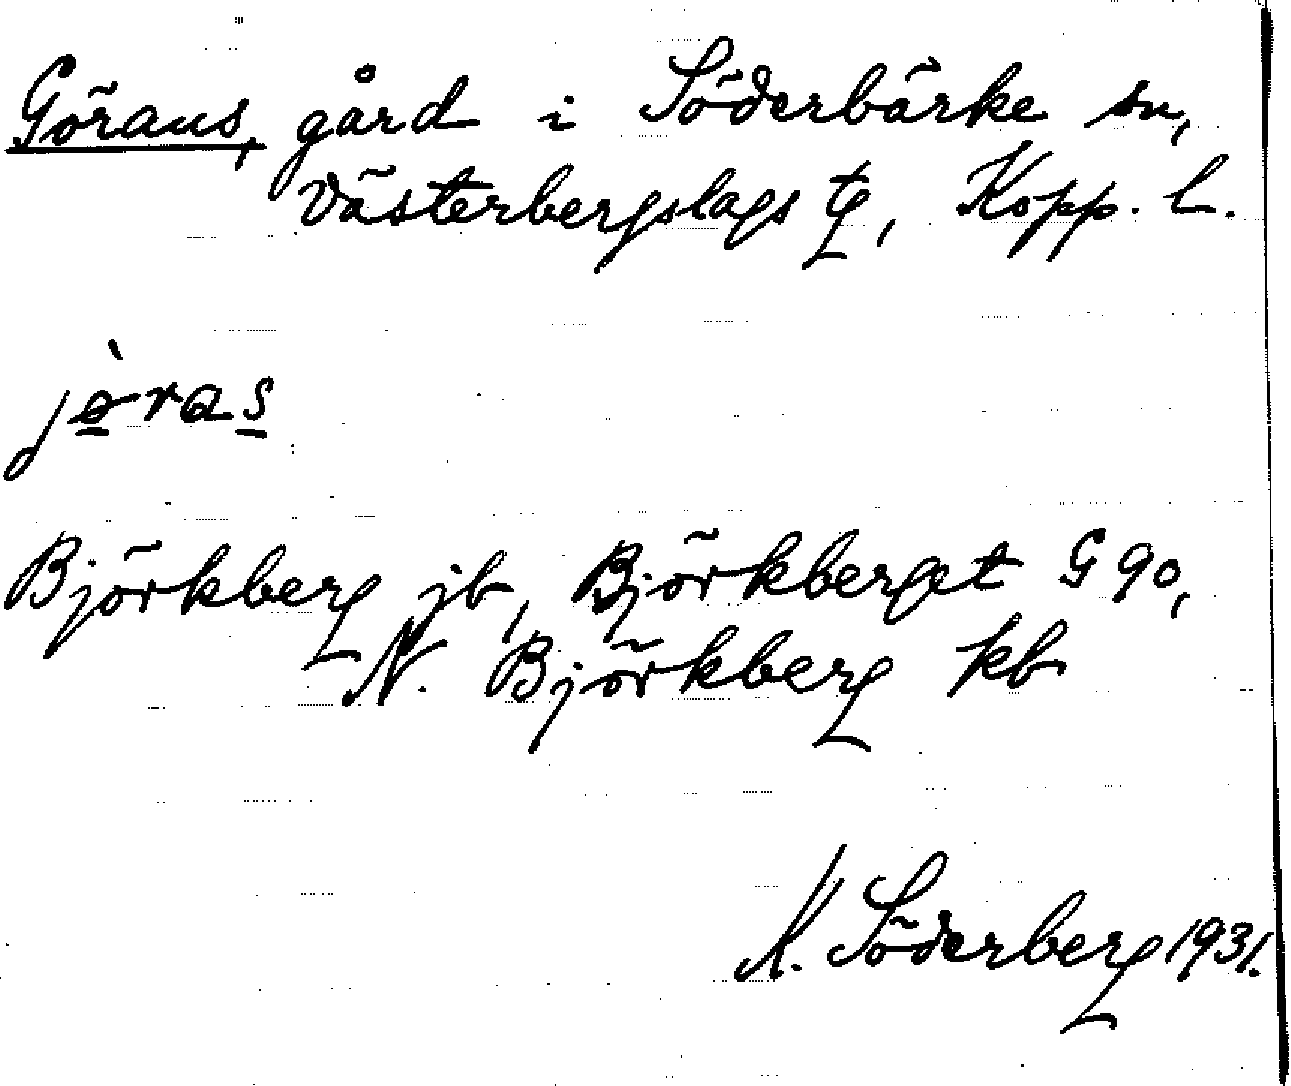 Görans, gård i Söderbärke sn,
Västerbergslags tg, Kopp. l.
jɵ̀ras
Björkberg jb, Björkberget G 90,
N. Björkberg kb
K. Söderberg 1931.